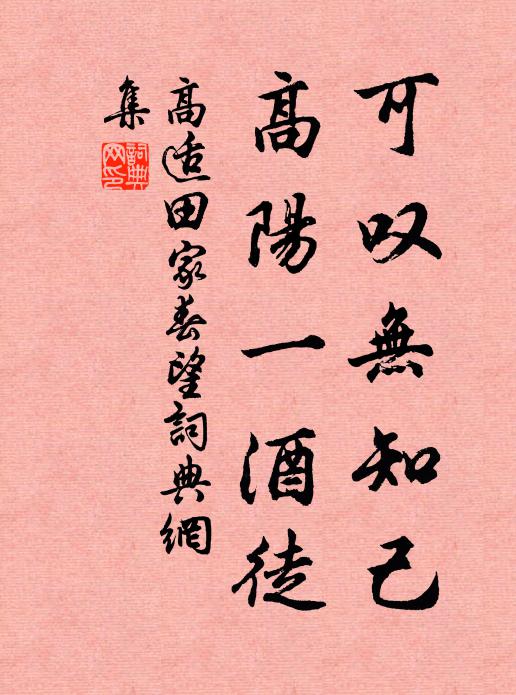 可叹無知己
高陽一酒徒
高适田家春望詞典網
集
詞典
网印